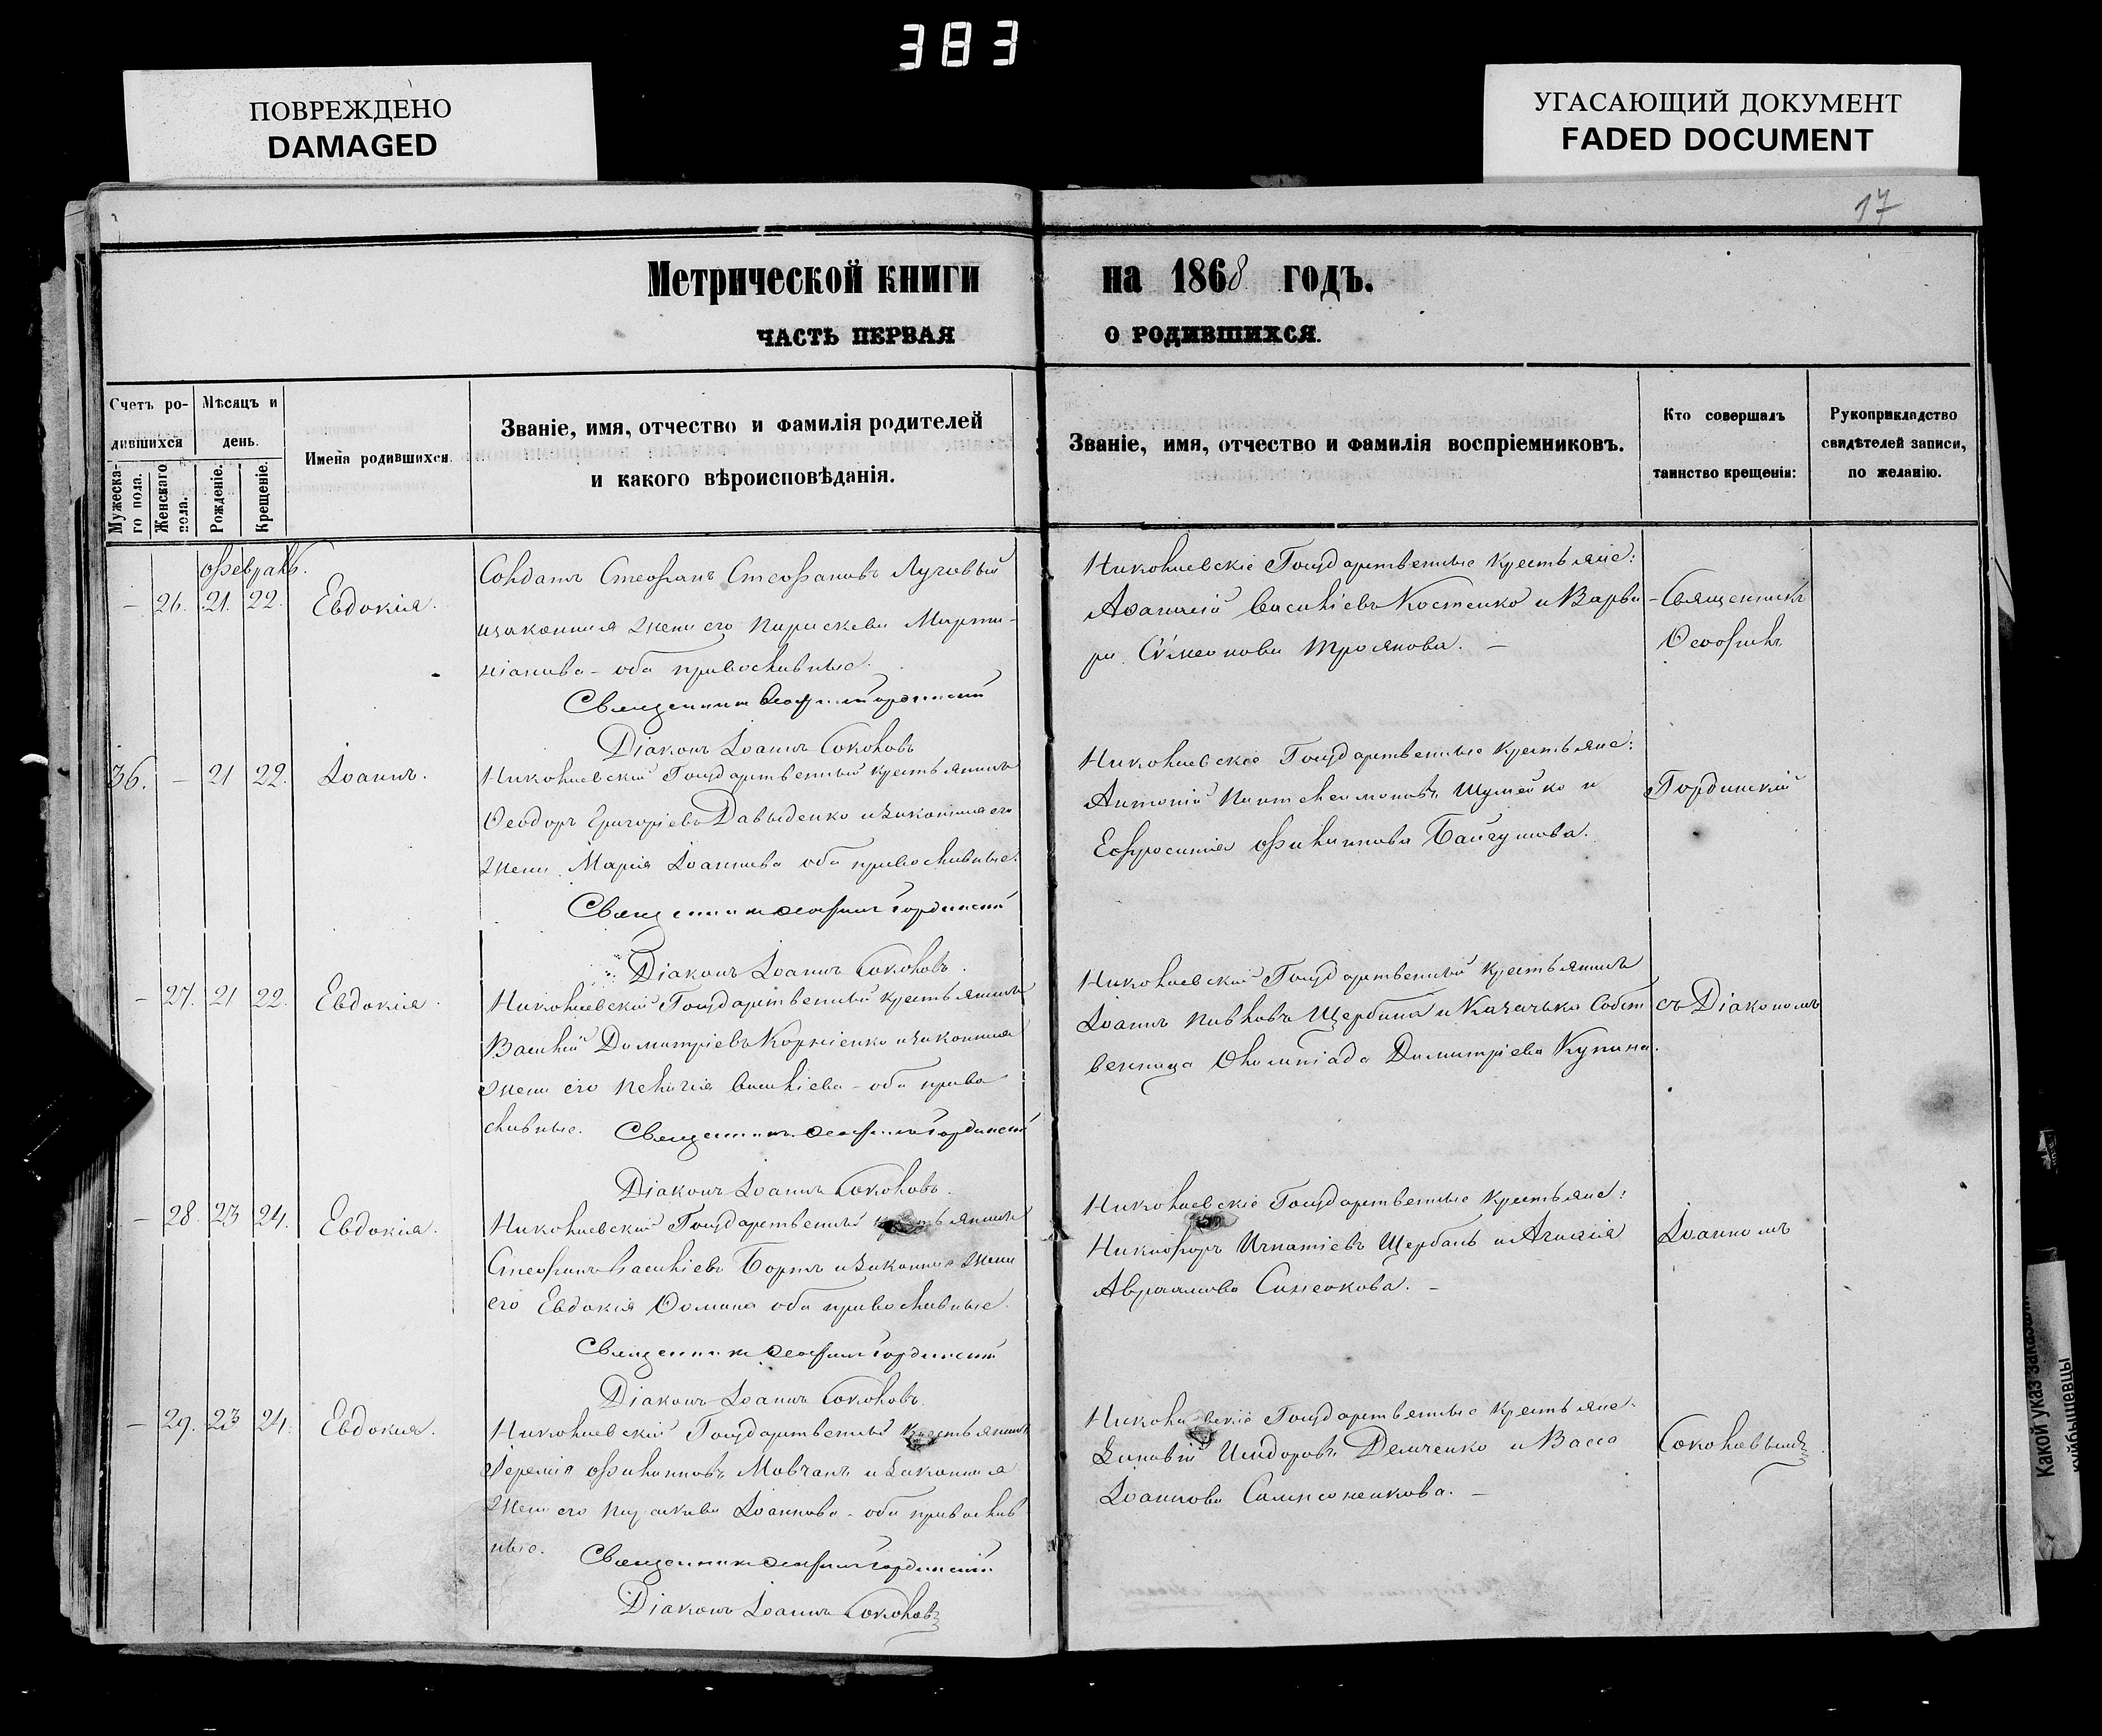 383
ПОВРЕЖДЕНО
DAMAGED
УГАСАЮЩИЙ ДОКУМЕНТ
FADED DOCUMENT
17
Метрической книги на 1868 годъ.
ЧАСТЬ ПЕРВАЯ О РОДИВШИХСЯ.
Счетъ ро-
дившихся
Мужеска-
го пола.
Женскаго
пола.
Мѣсяцъ и
день.
Рожденіе.
Крещеніе.
Имена родившихся
Званіе, имя, отчество и фамилія родителей
и какого вѣроисповѣданія.
Званіе, имя, отчество и фамилія воспріемниковъ.
Кто совершалъ
таинство крещенія:
Рукоприкладство
свидѣтелей записи,
по желанію.
февраль.
– 26. 21. 22. Евдокія.
Солдатъ Стефанъ Стефановъ Луговый
изаконная жена его Параскева Марти-
ніанова – оба православные.
Священникъ Ѳеофилъ Гординскій
Діаконъ Іоаннъ Соколовъ
Николаевскіе Государственные крестьяне:
Аѳанасій Васильевъ Костенко и Варва-
ра Сѵмеонова Троянова. –
Священникъ
Ѳеофилъ
36. – 21 22. Іоаннъ.
Николаевскій Государственный крестьянинъ
Ѳеодоръ Григоріевъ Давыденко изаконная его
жена Марія Іоаннова оба православные.
Священникъ Ѳеофилъ Гординскій
Діаконъ Іоаннъ Соколовъ.
Николаевскіе Государственные крестьяне:
Антоній Пантелеимоновъ Шумейко и
Ефросинія Филиппова Байгушова.
Гординскій
– 27. 21 22. Евдокія.
Николаевскій Государственный крестьянинъ
Василій Димитріевъ Корніенко изаконная
жена его Пелагія Васильева – оба право
славные. Священникъ Ѳеофилъ Гординскій
Діаконъ Іоаннъ Соколовъ.
Николаевскій Государственный крестьянинъ
Іоаннъ Павловъ Щербина и Казачька Собст
венница Олимпіада Димитріева Купина.
съ Діакономъ
– 28. 23 24. Евдокія.
Николаевскій Государственный крестьянинъ
Стефанъ Васильевъ Бортъ изаконная жена
его Евдокія Ѳомина оба православные.
Священникъ Ѳеофилъ Гординскій
Діаконъ Іоаннъ Соколовъ.
Николаевскіе Государственные крестьяне:
Никифоръ Игнатіевъ Щербань и Агафія
Авраамова Синеокова. –
Іоанномъ
– 29. 23 24. Евдокия.
Николаевскій Государственный крестьянинъ
Іеремія Филипповъ Мовчанъ изаконная
жена его Параскева Іоаннова – оба православ
ные. Священникъ Ѳеофилъ Гординскій
Діаконъ Іоаннъ Соколовъ
Николаевскіе Государственные крестьяне.
Зиновій Исидоровъ Демченко и Васса
Іоаннова Самисоненкова. –
Соколовымъ
Какой указ заказан
куйбышевцы